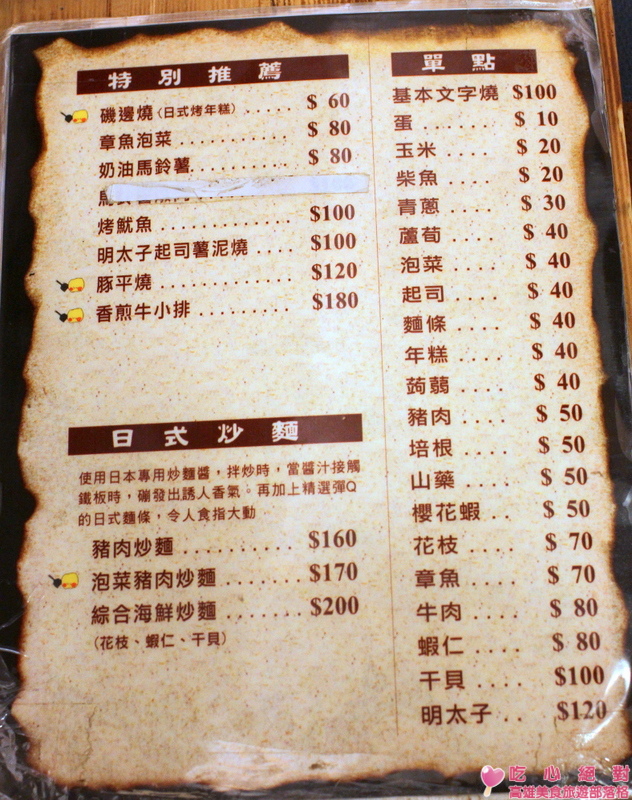 特別推薦
磯邊燒（日式烤年糕）...... $ 60
章魚泡菜.............. $ 80
奶油馬鈴薯............ $ 80
烤魷魚............... $100
明太子起司薯泥燒.... $100
豚平燒............... $120
香煎牛小排.......... $180
日式炒麵
使用日本專用炒麵醬，拌炒時，當醬汁接觸
鐵板時，磞發出誘人香氣。再加上精選彈Q
的日式麵條，令人食指大動
豬肉炒麵........... $160
泡菜豬肉炒麵....... $170
綜合海鮮炒麵....... $200
（花枝、蝦仁、干貝）
單點
基本文字燒 $100
蛋...... $ 10
玉米.... $ 20
柴魚.... $ 20
青蔥.... $ 30
蘆荀.... $ 40
泡菜.... $ 40
起司.... $ 40
麵條.... $ 40
年糕.... $ 40
蒟蒻.... $ 40
豬肉.... $ 50
培根.... $ 50
山藥.... $ 50
櫻花蝦.. $ 50
花枝.... $ 70
章魚.... $ 70
牛肉.... $ 80
蝦仁.... $ 80
干貝.... $100
明太子.. $120
吃心絕對
高雄美食旅遊部落格